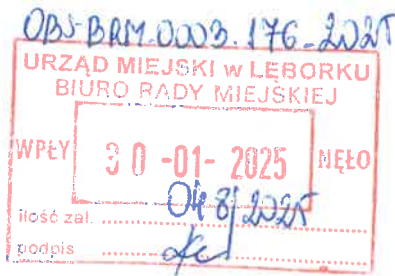 OBS-BRM.0003.176.2025
URZĄD MIEJSKI w LĘBORKU
BIURO RADY MIEJSKIEJ
WPŁY 30 -01- 2025 NĘŁO
048/2025
ilość zał.
podpis